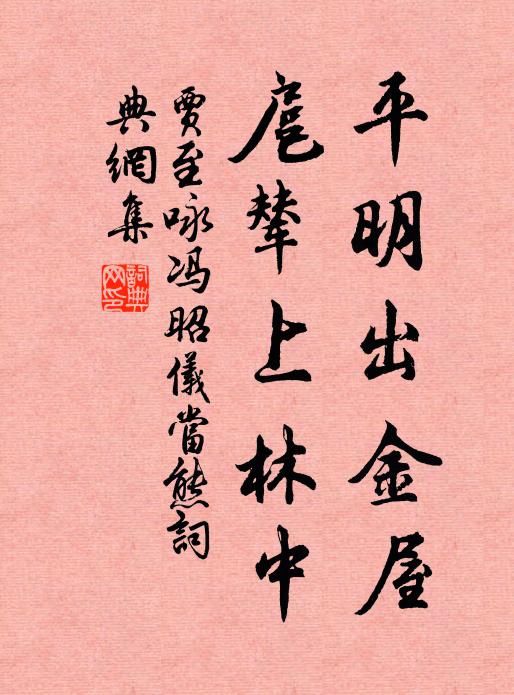 平明出金屋
扈輦上林中
賈至咏冯昭儀當熊詞
典網集
詞典网印